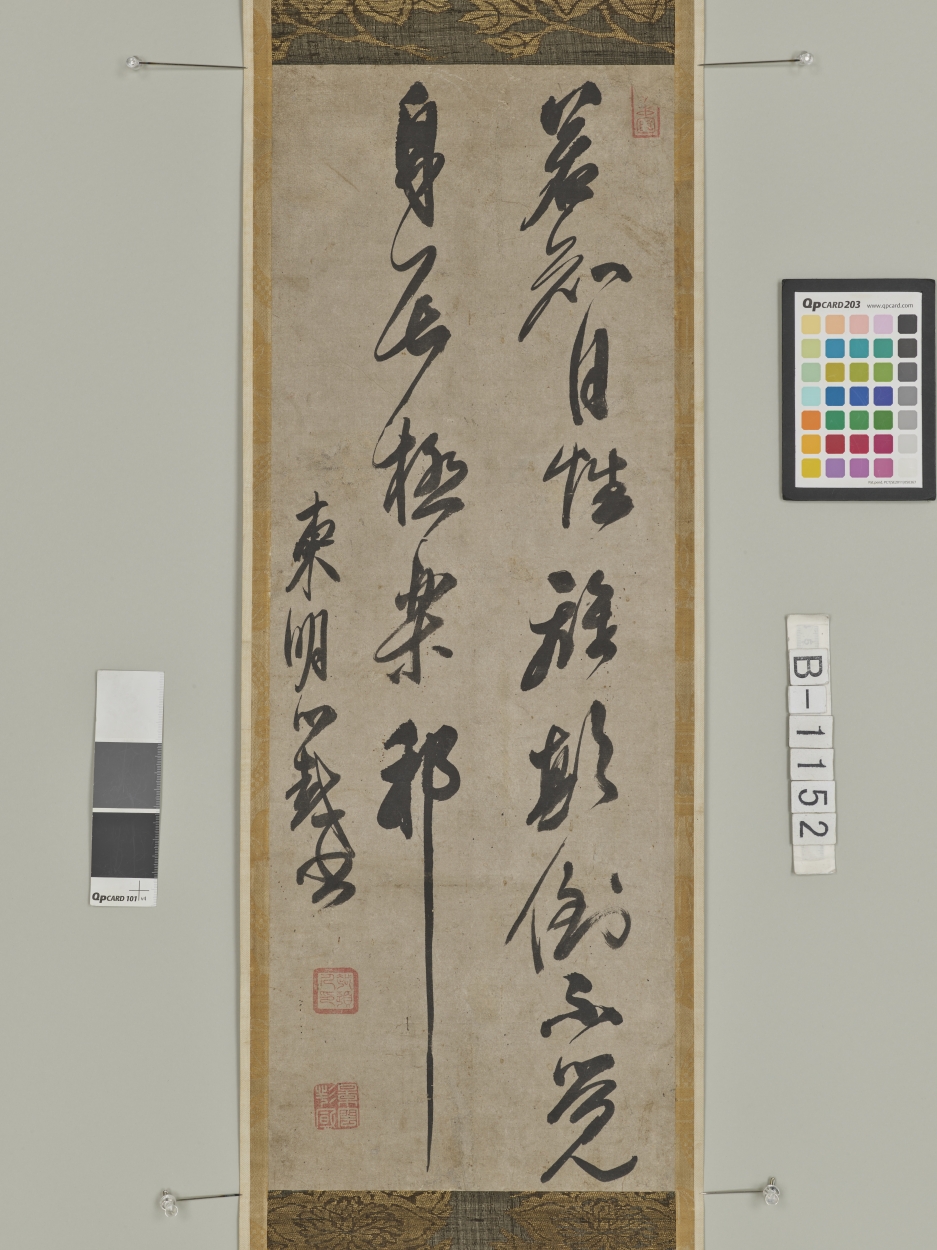 若知自性離顛倒不覺
身居極樂邦
東明心越書
QPCARD203 www.qpcard.com
B-1152
QPCARD 101